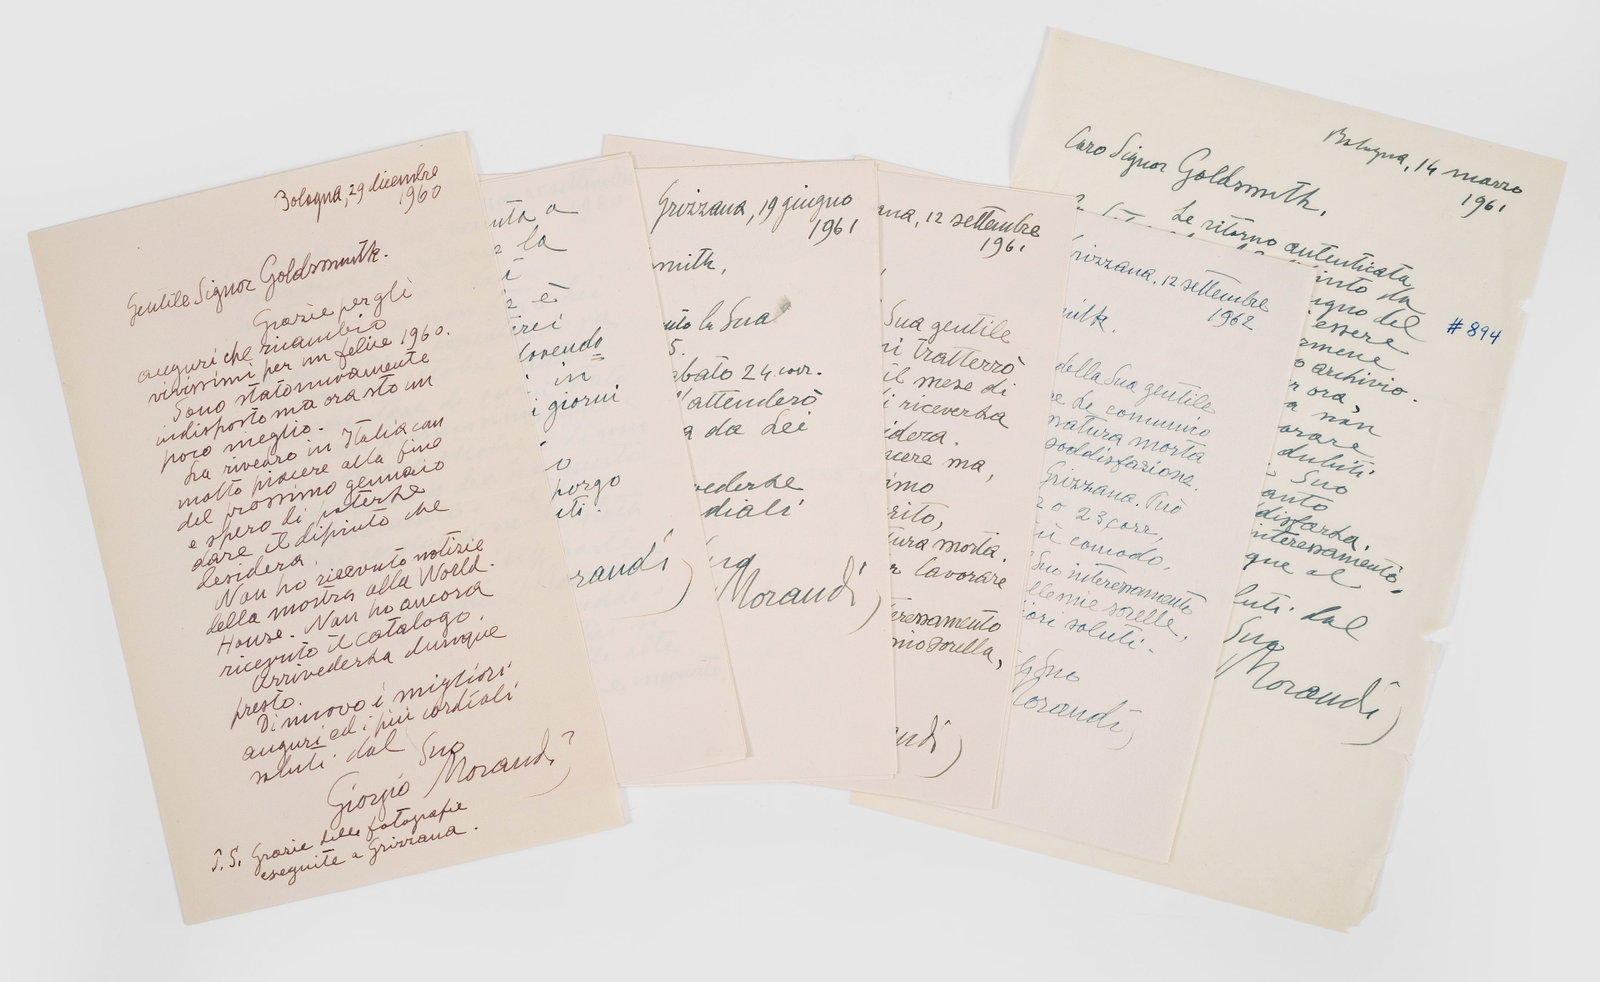 Bologna, 29 dicembre
1960
Gentile Signor Goldsmith.
Grazie per gli
auguri che ricambio
vivissimi per un felice 1960.
Sono stato nuovamente
indisposto ma ora sto un
poco meglio.
La rivedrò in Italia con
molto piacere alla fine
del prossimo gennaio
e spero di poterLe
dare il dipinto che
desidera.
Non ho ricevuto notizie
della mostra alla World.
House. Non ho ancora
ricevuto il catalogo.
ArrivederLa dunque
presto.
Di nuovo i migliori
auguri ed i più cordiali
saluti. dal Suo
Giorgio Morandi
P.S. Grazie delle fotografie
eseguite a Grizzana.
uta a
la
i
è
rei
dovendo
in
i giorni
o
porgo
ti.
randi
Grizzana, 19 giugno
1961
mith,
uto la Sua
5.
abato 24 corr.
attenderò
a da Lei
vederLa
diali
Morandi
ana, 12 settembre
1961
Sua gentile
i tratterrò
il mese di
i riceverLa
idera.
cere ma,
imo
rito,
tura morta
r lavorare
teressamento
mia sorella,
ndi
rizzana, 12 settembre
1962
mith.
della Sua gentile
e Le comunico
natura morta
soddisfazione.
Grizzana. Può
2 o 23 corr,
più comodo.
Suo interessamento
lle mie sorelle,
iori saluti.
Suo
Morandi
Bologna, 14 marzo
1961
Caro Signor Goldsmith,
Le ritorno autenticata
into da
ugno del
essere
armene
o archivio.
r ora,
a non
orare
dubiti.
Suo
anto
disfarLa.
interessamento
que al
luti. dal
Suo
Morandi
#894